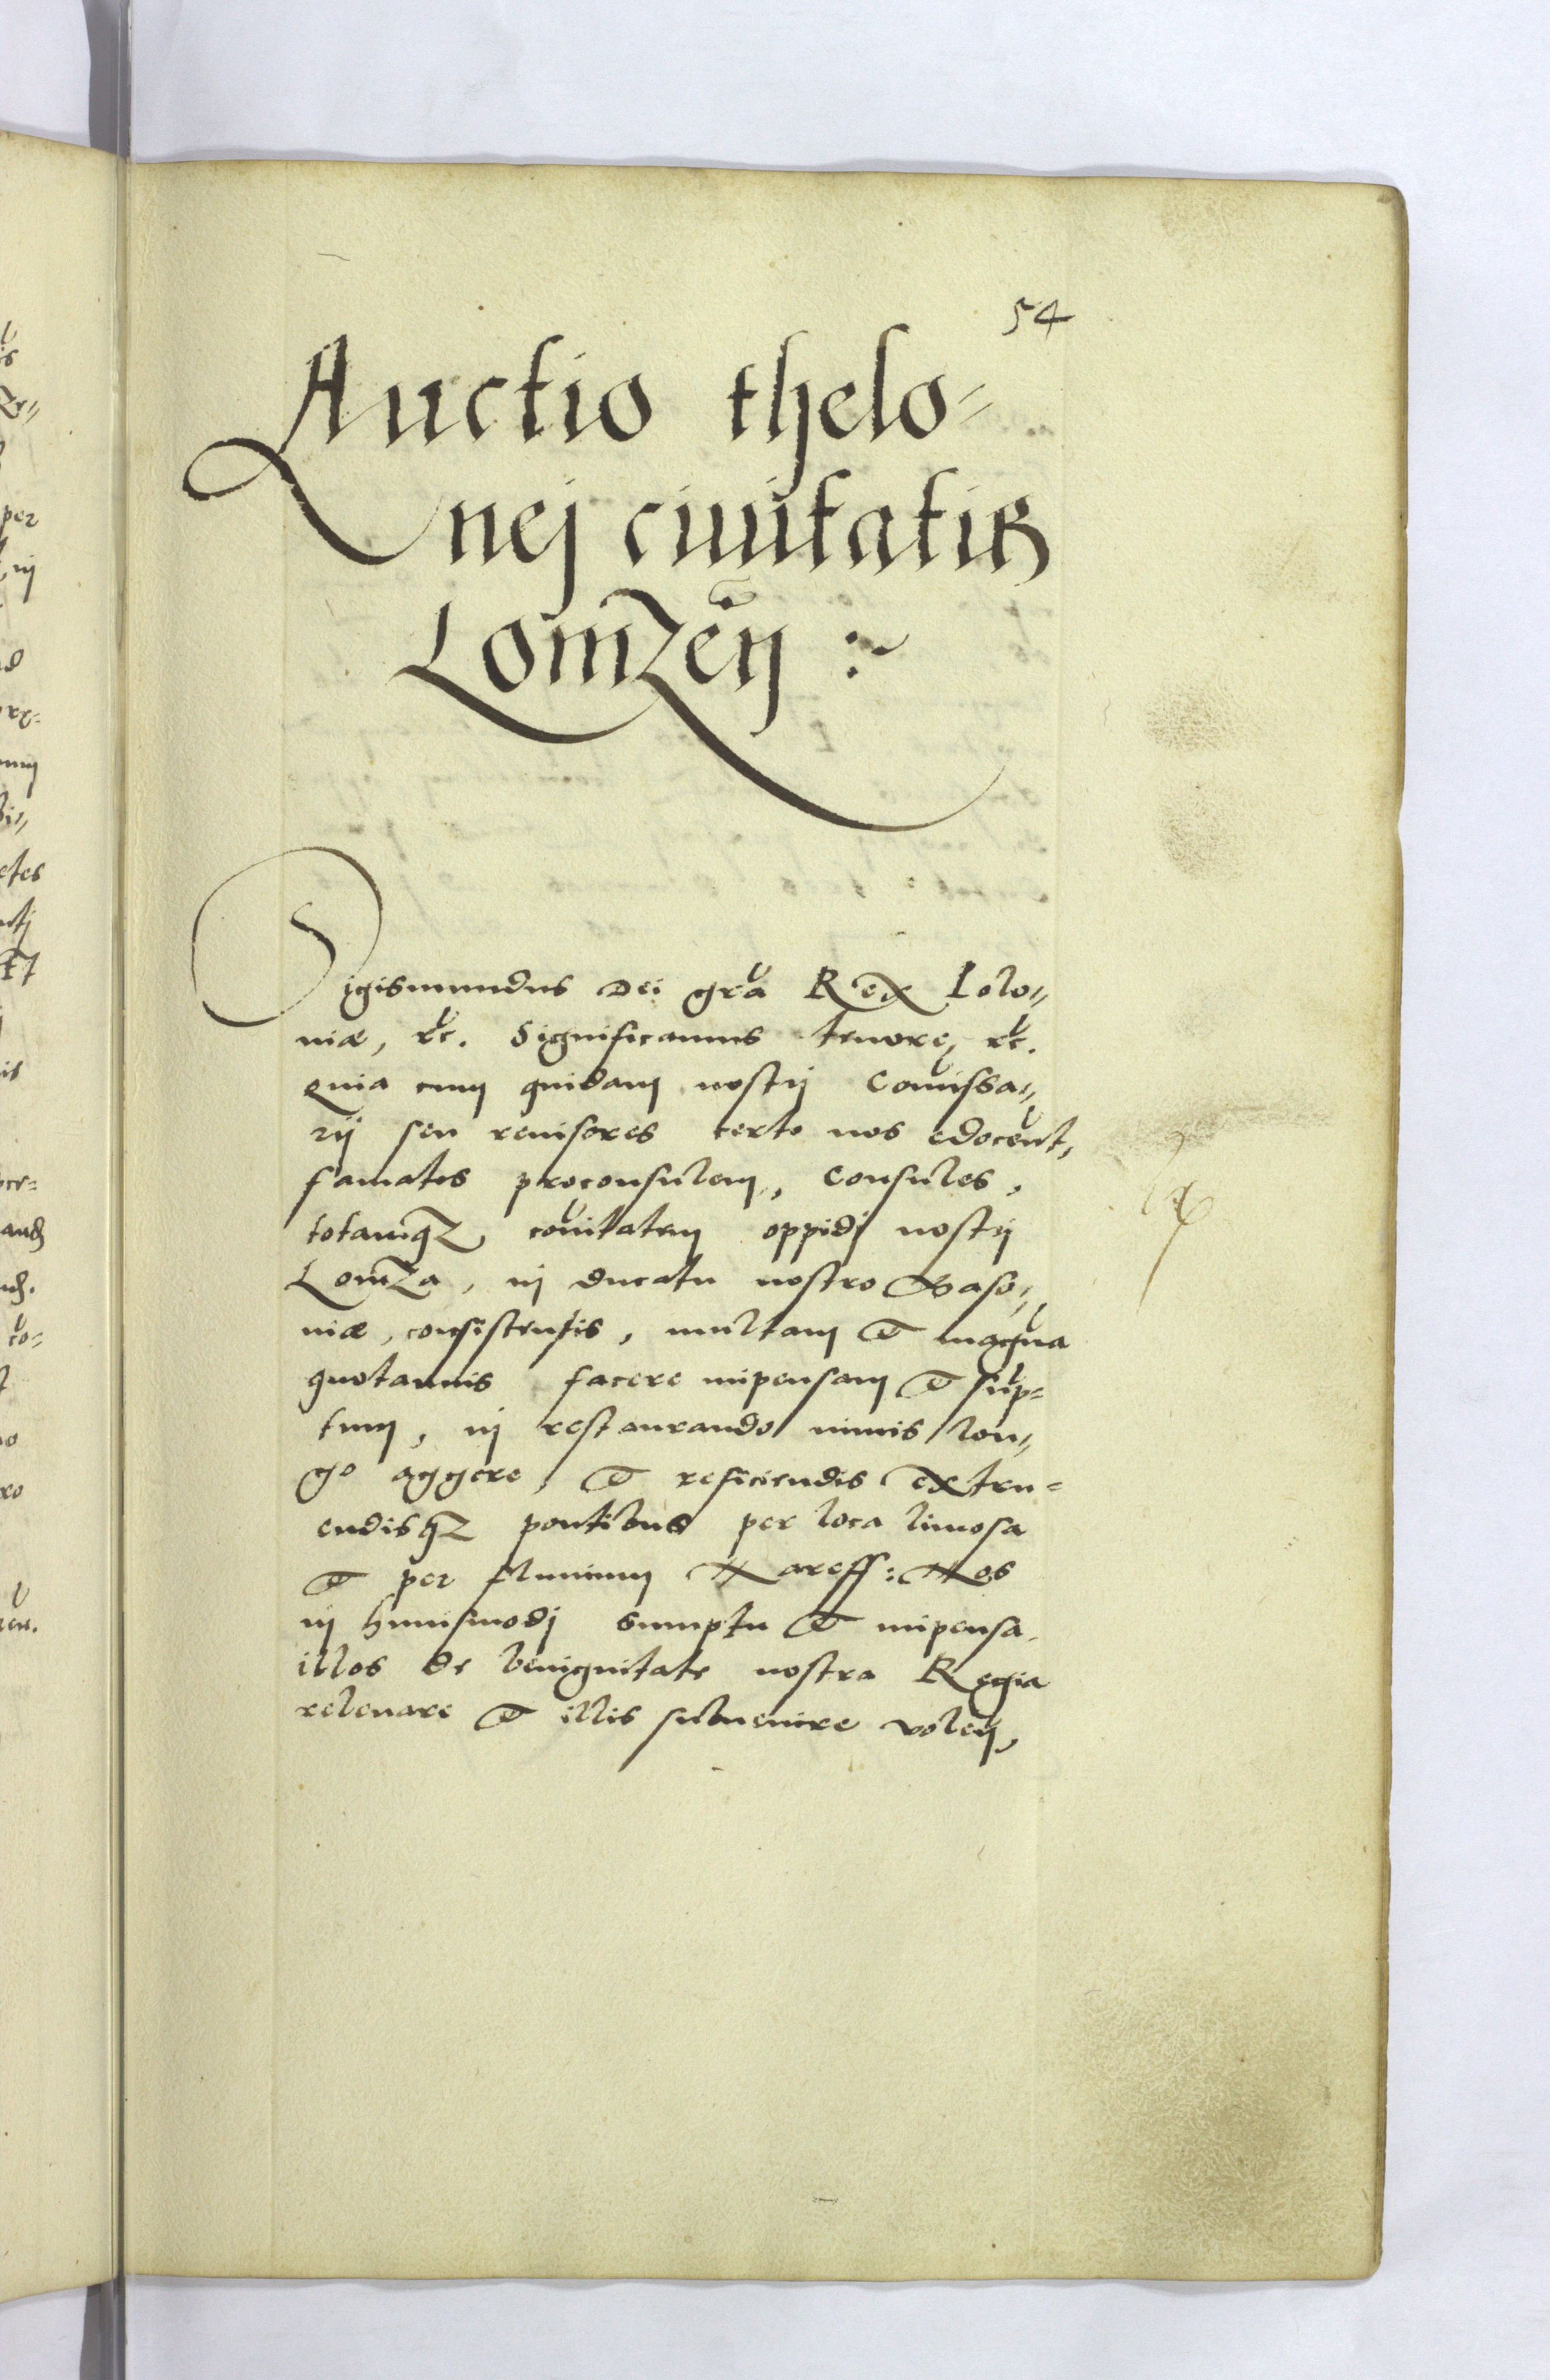 54
Auctio thelo=
nej ciuitatis
Lomzen̄ :~
Sigismundus Dei gra Rex Polo„
niæ, etc. Significamus tenore, etc.
quia cum quidam nostrj Comissa„
rij seu reuisores certo nos edocent,
famatos proconsulem, Consules,
totamqz comitatem oppidj nostrj
Lomza, in ducatu nostro Maso„
niæ, consistentis, multam et magna
quotannis facere impensam et sup=
tum, in restaurando nimis lon„
go aggere, et reficiendis extru=
endisqz pontibus per loca limosa
et per fluuium Nareff: Nos
in huiusmodj sumptu et impensa
illos de benignitate nostra Regia
releuare et illis subuenire volen,